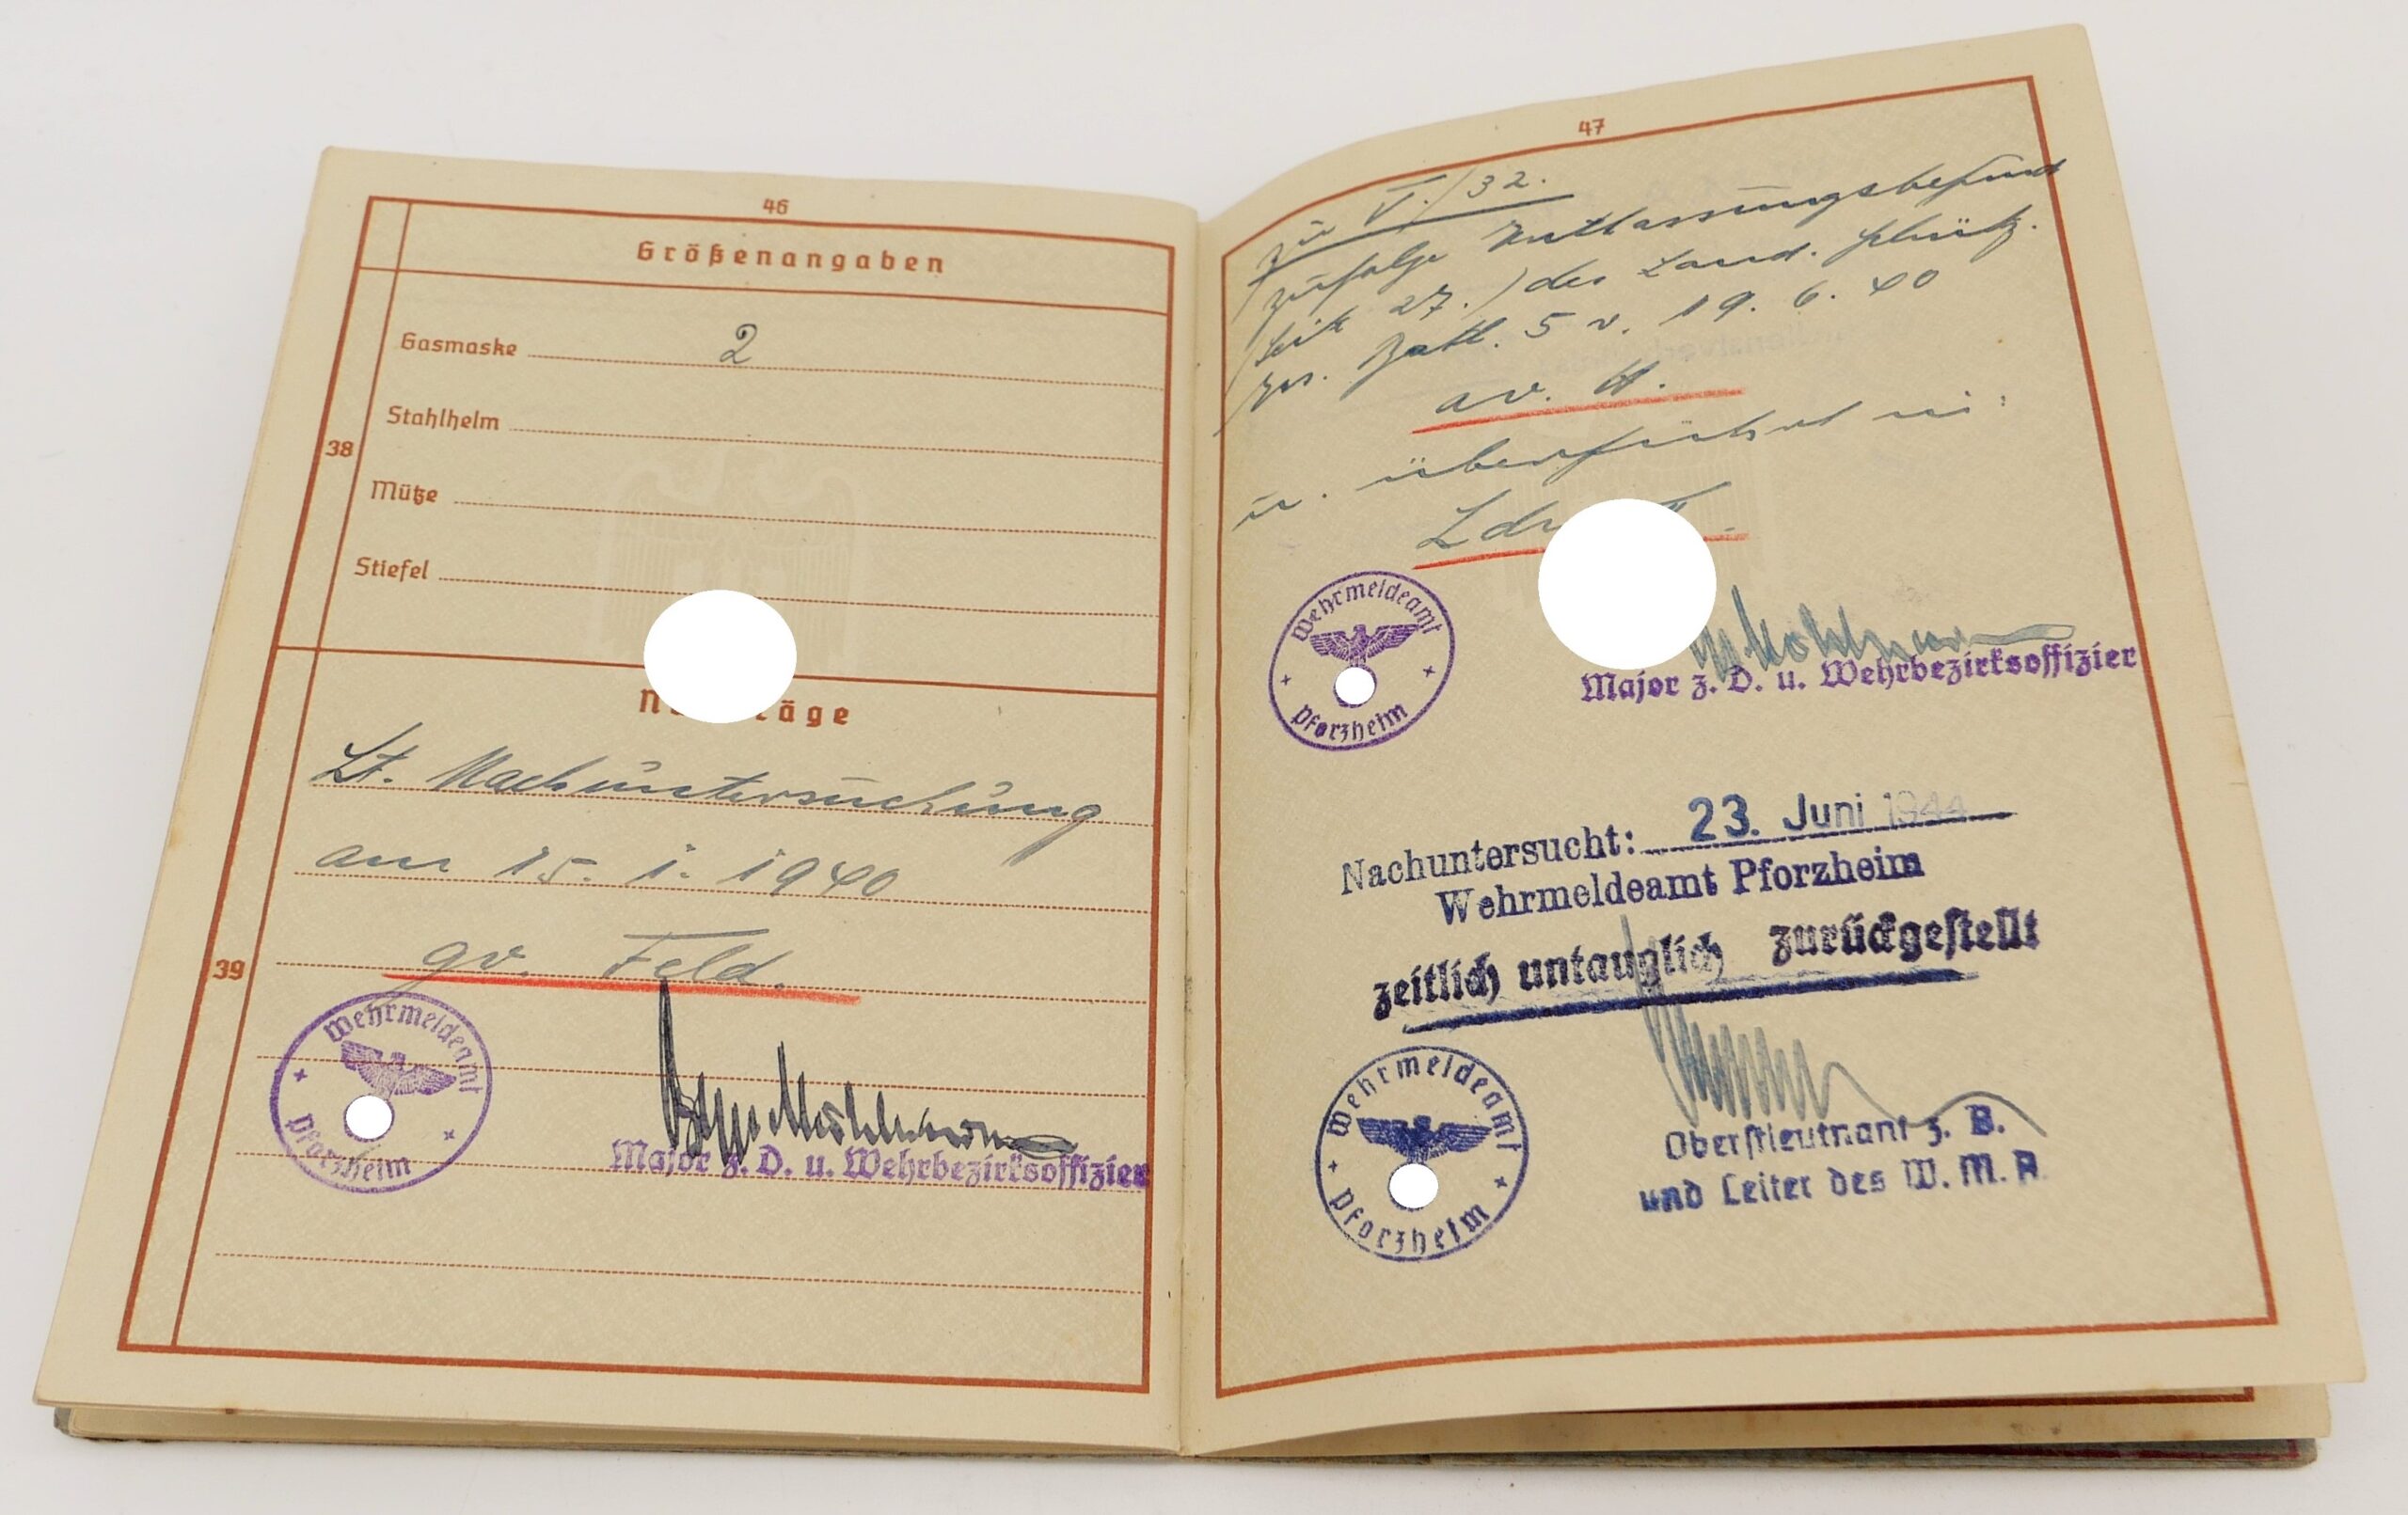 46
Größenangaben
38
Gasmaske 2
Stahlhelm
Mütze
Stiefel
39
Lt. Nachuntersuchung
am 15. 1. 1940
gv. Feld.
Wehrmeldeamt
Pforzheim
Major z. D. u. Wehrbezirksoffizier
47
zu V./32.
zufolge Entlassungsbefund
Seite 27.) des Land. Schütz.
Batl. 5 v. 19. 6. 40
av. H.
u. überführt in:
Wehrmeldeamt
Pforzheim
Major z. D. u. Wehrbezirksoffizier
Nachuntersucht: 23. Juni 1944
Wehrmeldeamt Pforzheim
zeitlich untauglich zurückgestellt
Wehrmeldeamt
Pforzheim
Oberstleutnant z. B.
und Leiter des W. M. A.